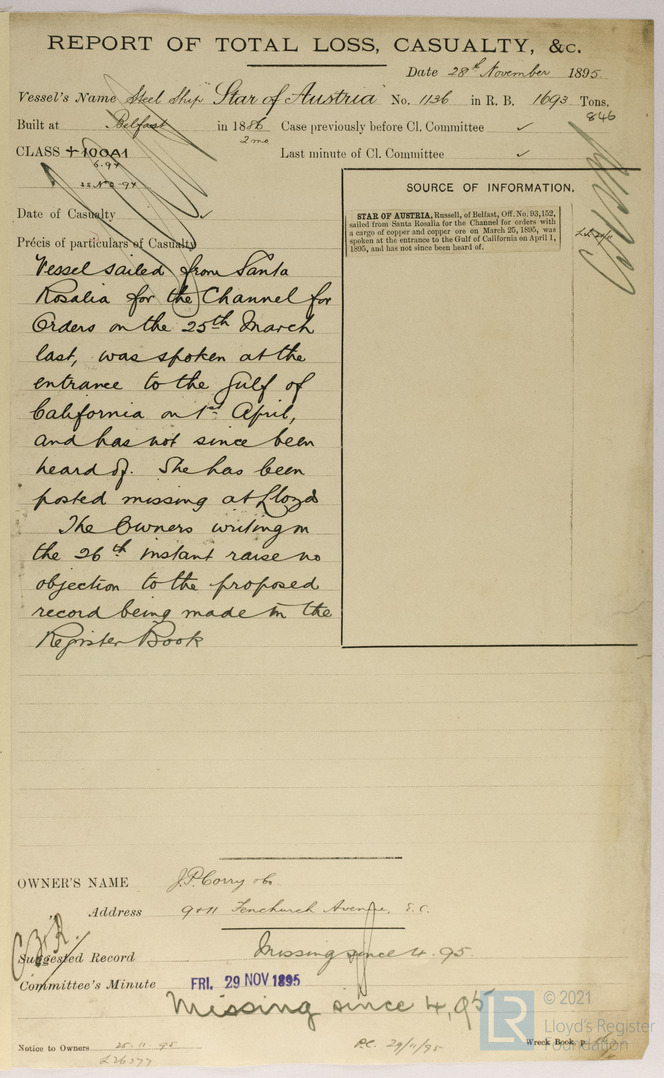 REPORT OF TOTAL LOSS, CASUALTY, &c.
Date 28th November 1895.
Vessel's Name Steel Ship "Star of Austria" No. 1136 in R. B. 1693 Tons.
846
Built at Belfast in 1886 Case previously before Cl. Committee ✓
2 mo
CLASS +100A1 Last minute of Cl. Committee ✓
6.94
Date of Casualty ✓
Précis of particulars of Casualty
Vessel sailed from Santa
Rosalia for the Channel for
Orders on the 25th March
last, was spoken at the
entrance to the Gulf of
California on 1st April,
and has not since been
heard of. She has been
posted missing at Lloyds
The Owners writing on
the 26th instant raise no
objection to the proposed
record being made in the
Register Book
SOURCE OF INFORMATION.
STAR OF AUSTRIA, Russell, of Belfast, Off. No. 93,152,
sailed from Santa Rosalia for the Channel for orders with
a cargo of copper and copper ore on March 25, 1895, was
spoken at the entrance to the Gulf of California on April 1,
1895, and has not since been heard of.
OWNER'S NAME J.P. Corry & Co.
" Address 9 & 11 Fenchurch Avenue, E.C.
Suggested Record Missing since 4.95
Committee's Minute FRI. 29 NOV 1895
Missing since 4.95
Notice to Owners 25.11.95
P.C. 29/11/95
Wreck Book, p.
LR
© 2021
Lloyd's Register
Foundation